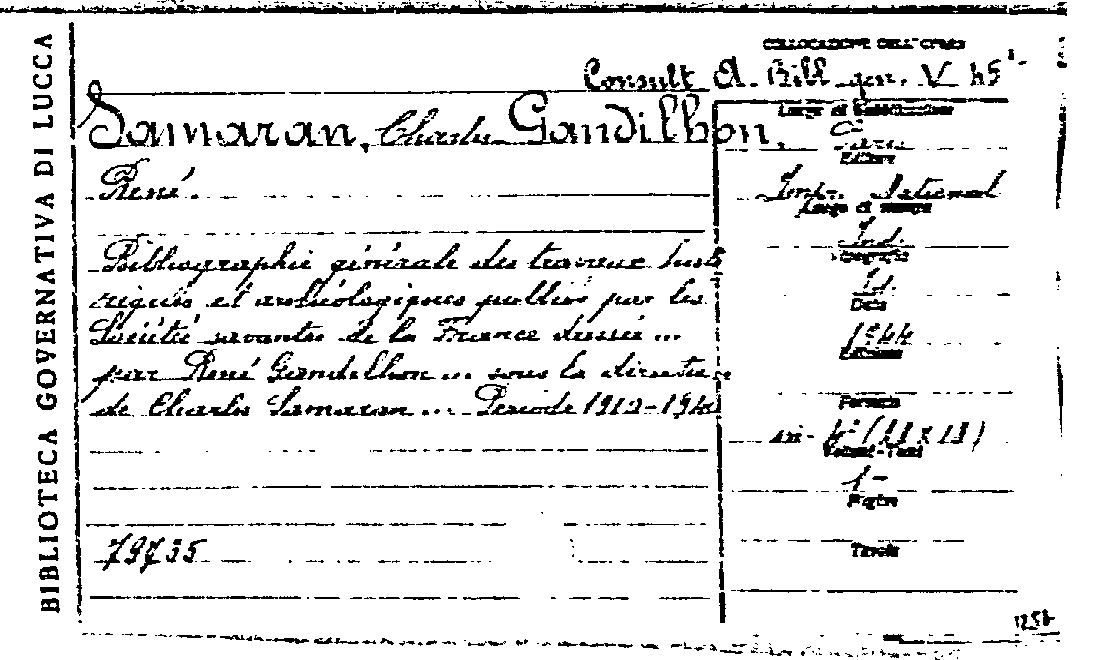 BIBLIOTECA GOVERNATIVA DI LUCCA
COLLOCAZIONE DELL'OPERA
Consult A. Bibl. gen. V 45
Samaran, Charles Gandilhon,
René.
Bibliographie générale des travaux histo
riques et archéologiques publiés par les
Société savantes de la France dressée ...
par René Gandilhon ... sous la direction
de Charles Samaran ... Periode 1910-1940
79735
Luogo di pubblicazione
Editore
Imp. National
Luogo di stampa
Ind.
Tipografia
Id.
Data
1944
Edizione
Formato
in-4°
Volumi-Tomi
1-
Pagine
Tavole